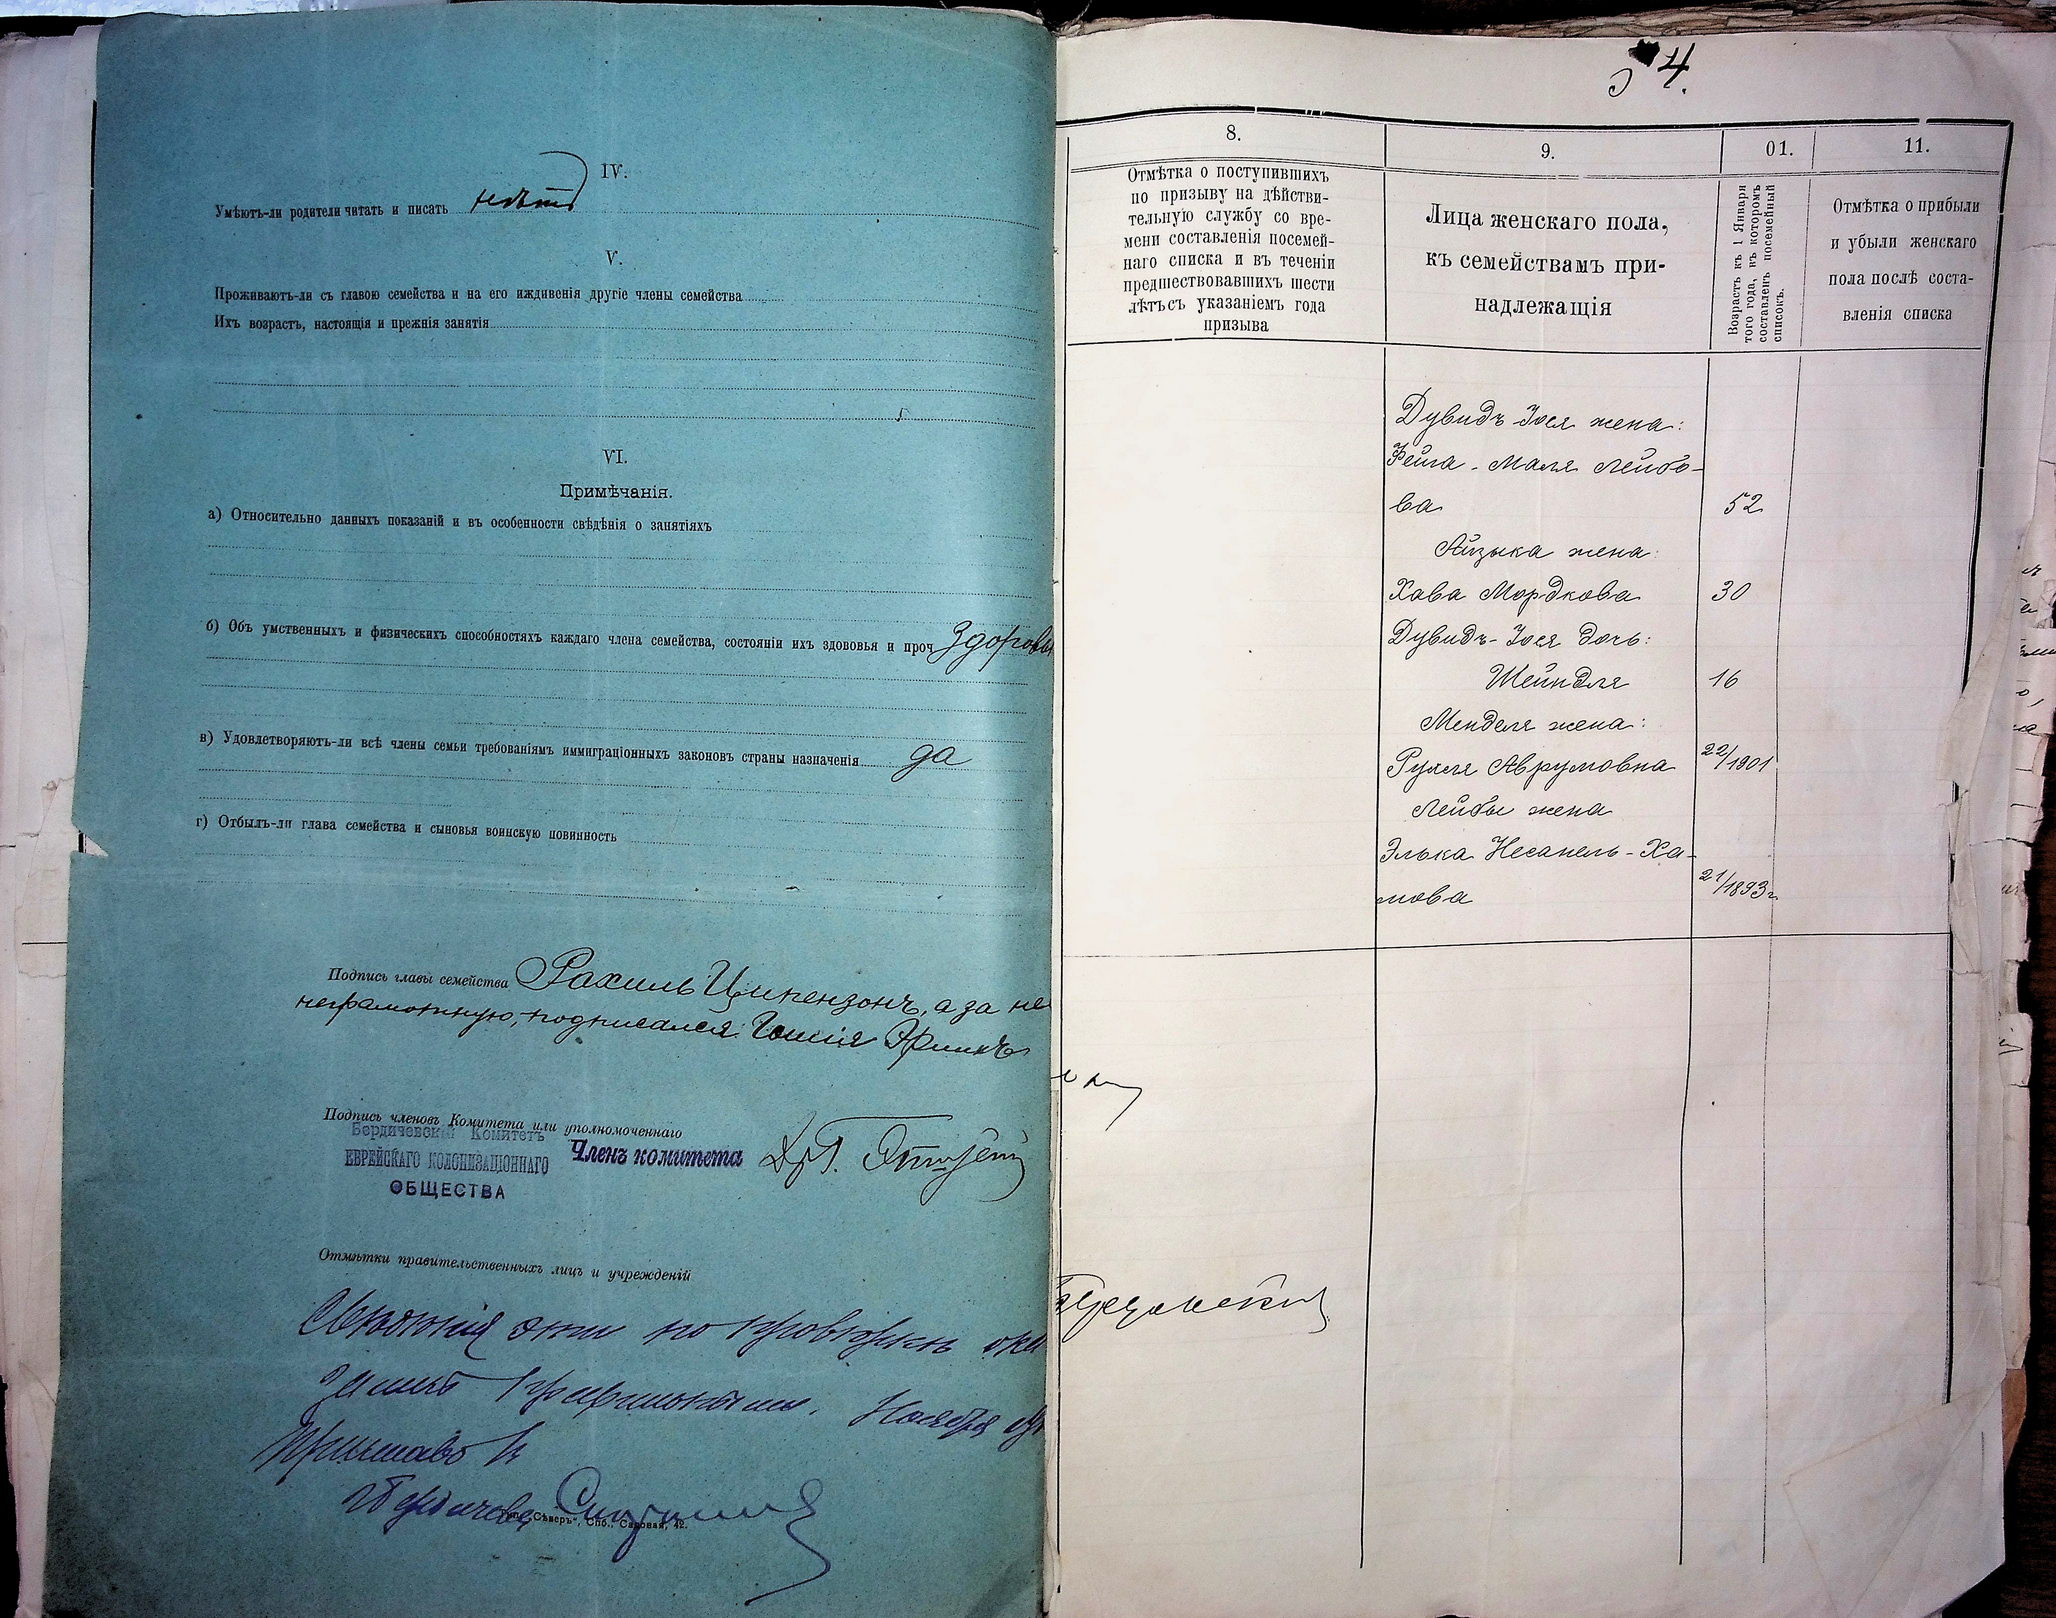 IV.
Умѣютъ-ли родители читать и писать нѣтъ
V.
Проживаютъ-ли съ главою семейства и на его иждивенія другіе члены семейства
Ихъ возрастъ, настоящія и прежнія занятія
VI.
Примѣчанія.
а) Относительно данныхъ показаній и въ особенности свѣдѣнія о занятіяхъ
б) Объ умственныхъ и физическихъ способностяхъ каждаго члена семейства, состояніи ихъ здововья и проч Здоровы
в) Удовлетворяютъ-ли всѣ члены семьи требованіямъ иммиграціонныхъ законовъ страны назначенія да
г) Отбылъ-ли глава семейства и сыновья воинскую повинность
Подпись главы семейства Рахиль Ципензонъ, а за не
неграмотную, подписался:
Подпись членовъ Комитета или уполномоченнаго
Бердичевскій Комитетъ
ЕВРЕЙСКАГО КОЛОНИЗАЦІОННАГО
ОБЩЕСТВА
Членъ комитета
Отмѣтки правительственныхъ лицъ и учрежденій
Свѣдѣнія эти по провѣркѣ ока
Ноября
Бердичева
"Сѣверъ", Спб., Садовая, 42.
4.
8.
Отмѣтка о поступившихъ
по призыву на дѣйстви-
тельную службу со вре-
мени составленія посемей-
наго списка и въ теченіи
предшествовавшихъ шести
лѣтъсъ указаніемъ года
призыва
9.
Лица женскаго пола,
къ семействамъ при-
надлежащія
01.
Возрастъ къ 1 Января
того года, въ которомъ
составленъ посемейный
списокъ.
11.
Отмѣтка о прибыли
и убыли женскаго
пола послѣ соста-
вленія списка
Дувидъ-Іося жена:
Фейга-Маля Лейбо-
ва 52
Айзыка жена:
Хава Мордкова 30
Дувидъ-Іося дочь:
Шейндля 16
Менделя жена:
Рухля Аврумовна 22/1901
Лейбы жена
Элька Несанель-Ха-
мова 21/1893г